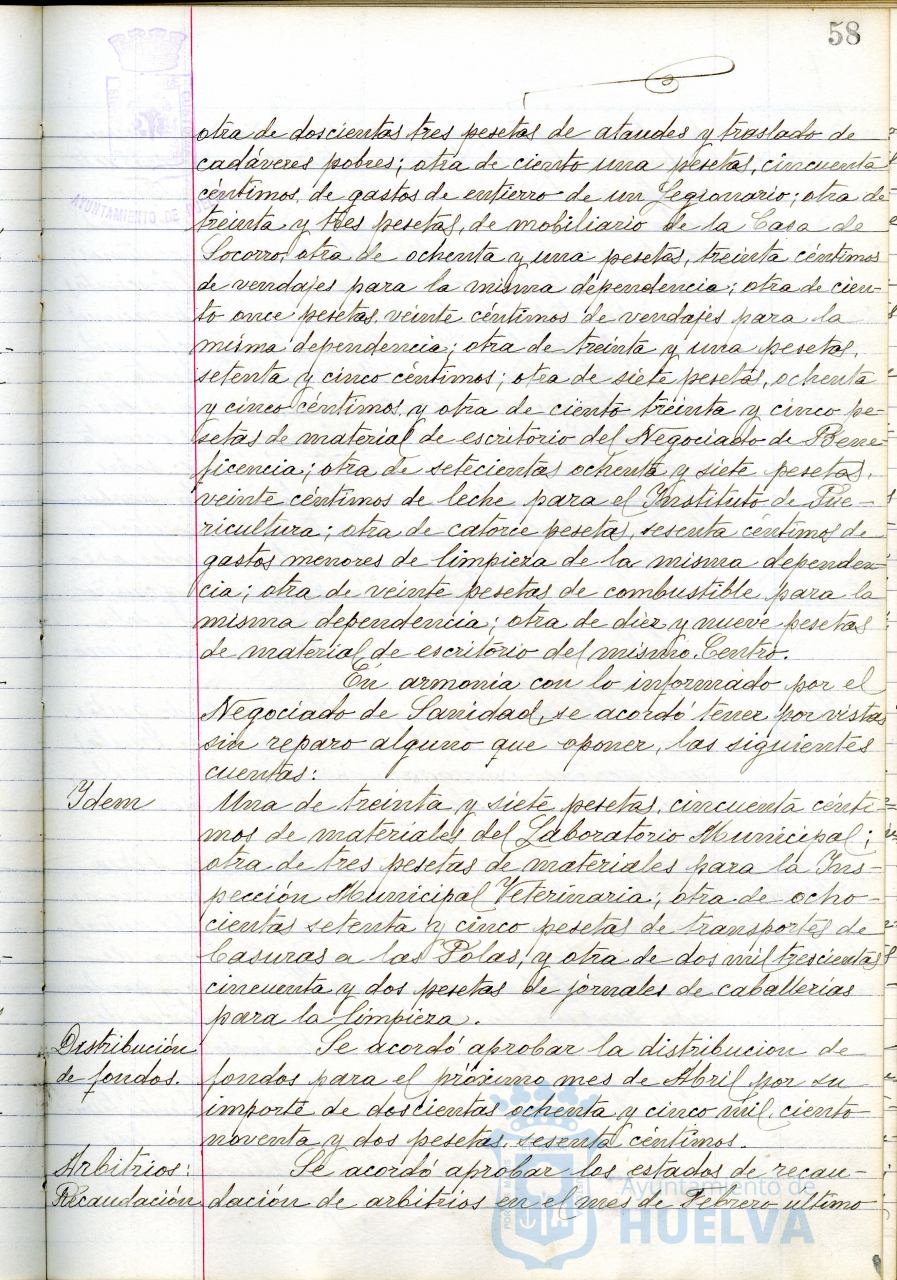 58
otra de doscientas tres pesetas de ataudes y traslado de
cadáveres pobres; otra de ciento una pesetas, cincuenta
céntimos, de gastos de entierro de un Legionario; otra de
treinta y tres pesetas, de mobiliario de la Casa de
Socorro, otra de ochenta y una pesetas, treinta céntimos
de vendajes para la misma dependencia; otra de cien-
to once pesetas, veinte céntimos de vendajes para la
misma dependencia; otra de treinta y una pesetas,
setenta y cinco céntimos; otra de siete pesetas, ochenta
y cinco céntimos y otra de ciento treinta y cinco pe-
setas de material de escritorio del Negociado de Bene-
ficencia; otra de setecientas ochenta y siete pesetas,
veinte céntimos de leche para el Instituto de Pue-
ricultura; otra de catorce pesetas, sesenta céntimos de
gastos menores de limpieza de la misma dependen-
cia; otra de veinte pesetas de combustible para la
misma dependencia; otra de diez y nueve pesetas
de material de escritorio del mismo Centro.
En armonía con lo informado por el
Negociado de Sanidad, se acordó tener por vistas
sin reparo alguno que oponer, las siguientes
cuentas:
Ydem Una de treinta y siete pesetas, cincuenta cénti-
mos de materiales del Laboratorio Municipal;
otra de tres pesetas de materiales para la Ins-
pección Municipal Veterinaria; otra de ocho-
cientas setenta y cinco pesetas de transportes de
basuras a las Polas, y otra de dos mil trescientas
cincuenta y dos pesetas de jornales de caballerías
para la limpieza.
Distribución Se acordó aprobar la distribucion de
de fondos. fondos para el próximo mes de Abril por su
importe de doscientas ochenta y cinco mil, ciento
noventa y dos pesetas, sesenta céntimos.
Arbitrios: Se acordó aprobar los estados de recau-
Recaudación dación de arbitrios en el mes de Febrero último
AYUNTAMIENTO DE
Ayuntamiento de
HUELVA